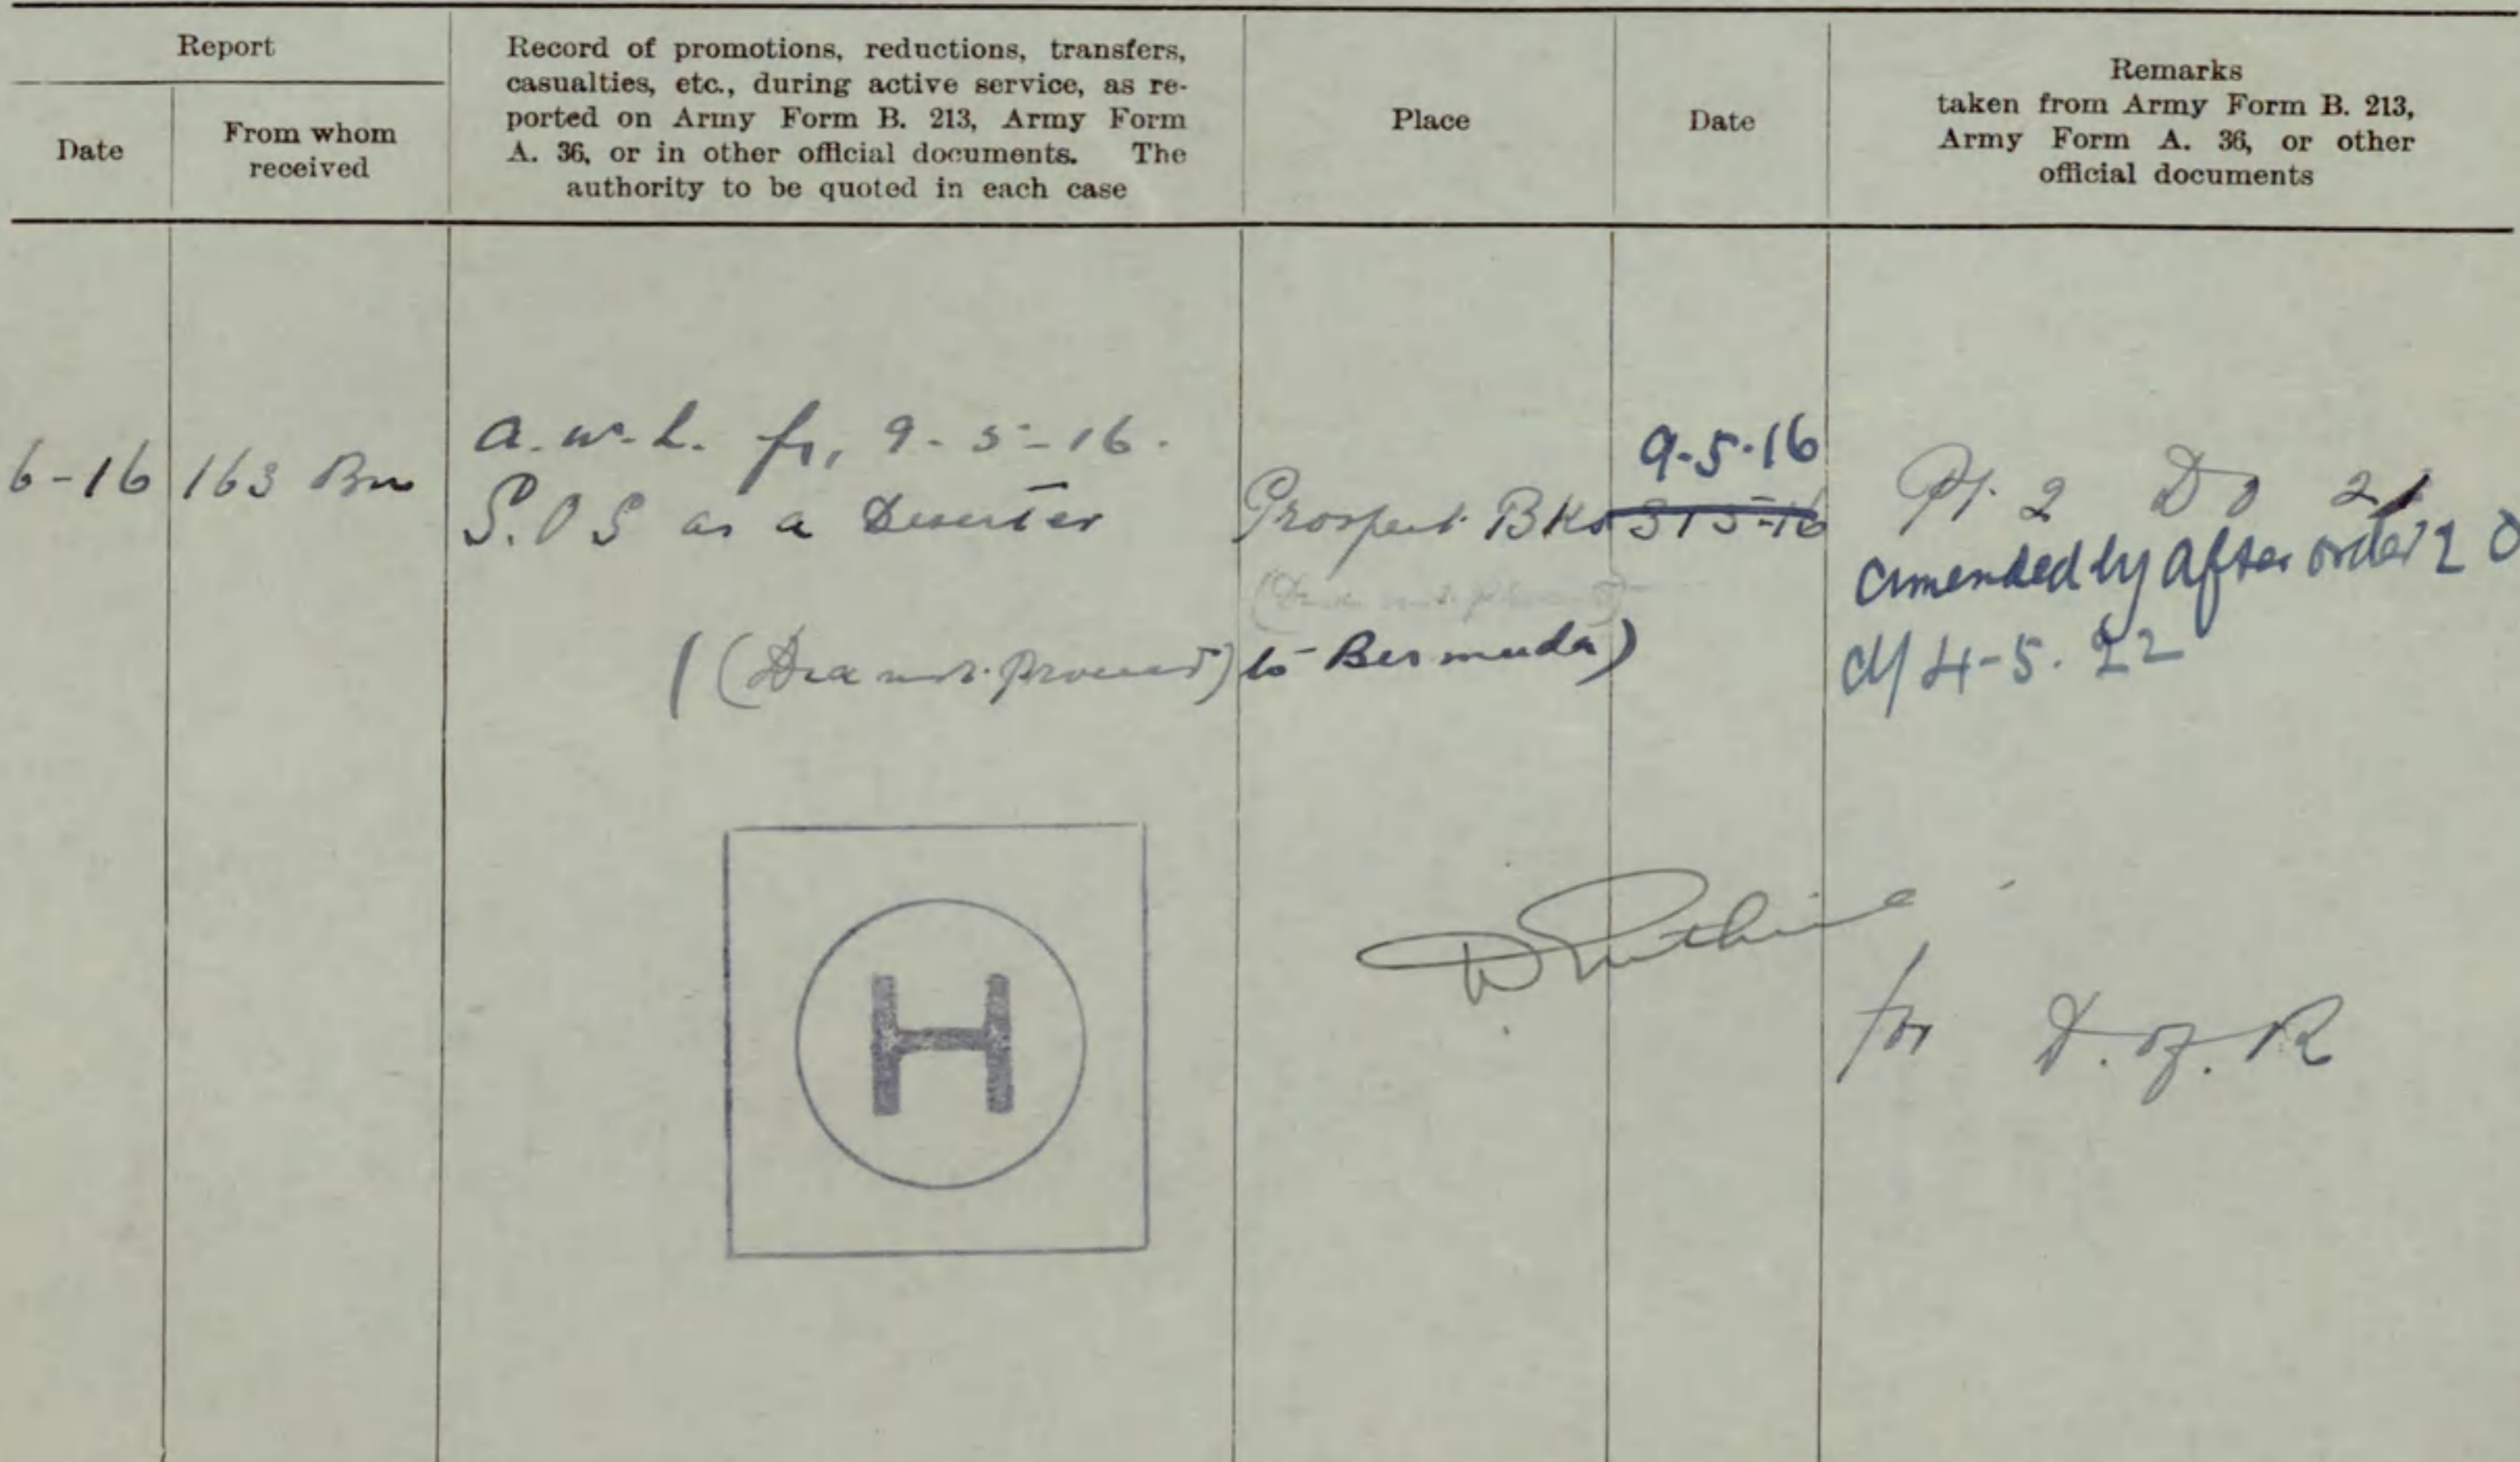 Report
Date
From whom
received
Record of promotions, reductions, transfers,
casualties, etc., during active service, as re-
ported on Army Form B. 213, Army Form
A. 36, or in other official documents. The
authority to be quoted in each case
Place
Date
Remarks
taken from Army Form B. 213,
Army Form A. 36, or other
official documents
6-16
163 Bn
a.w.l. fr, 9-5-16.
S.O S as a Deserter
Prospect Bks
9-5-16
31-5-16
Pt. 2 D O 21
amended by after order 20
d/ 4-5.22
((Did not proceed) to Bermuda)
H
for D. of. R